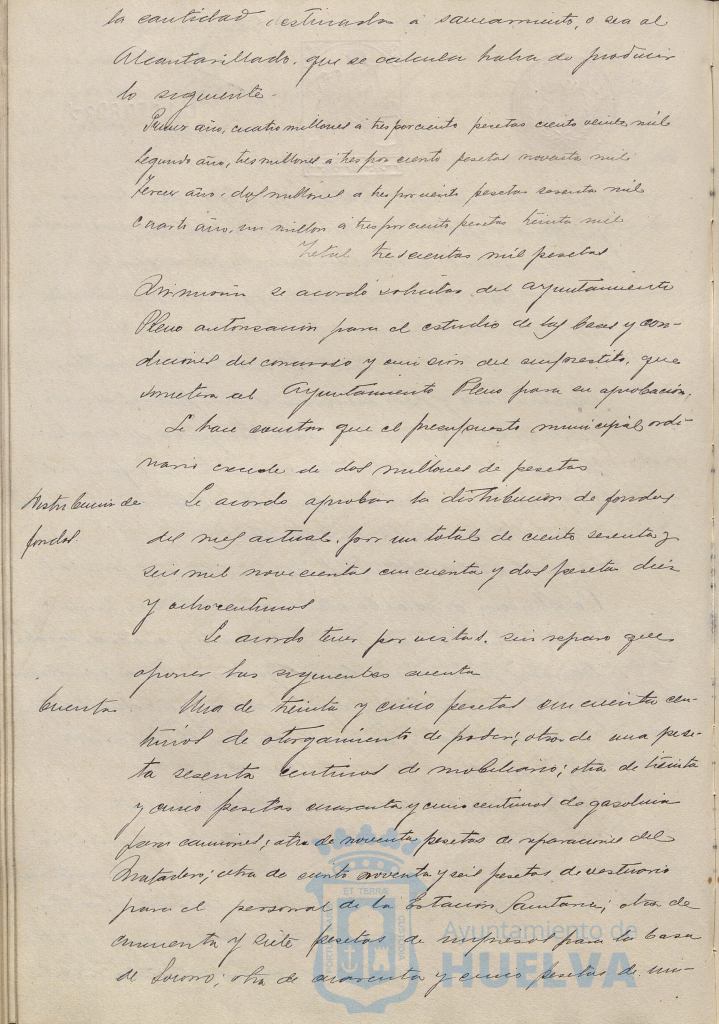 la cantidad destinada á saneamiento, o sea al
Alcantarillado, que se calcula habra de producir
lo siguiente.
Primer año, cuatro millones á tres por ciento pesetas ciento veinte mil
Segundo año, tres millones á tres por ciento pesetas noventa mil
Tercer año, dos millones á tres por ciento pesetas sesenta mil
Cuarto año, un millon á tres por ciento pesetas treinta mil
Total trescientas mil pesetas
Asimismo se acordó solicitar del Ayuntamiento
Pleno autorización para el estudio de las bases y con-
diciones del concurso y emisión del emprestito, que
someterá al Ayuntamiento Pleno para su aprobación.
Se hace constar que el presupuesto municipal ordi-
nario excede de dos millones de pesetas
Distribución de
fondos.
Se acordo aprobar la distribución de fondos
del mes actual, por un total de ciento sesenta y
seis mil novecientas cincuenta y dos pesetas diez
y ocho centimos
Se acordo tener por vistas, sin reparo que
oponer las siguientes cuenta
Cuenta
Una de treinta y cinco pesetas cincuenta cen-
timos de otorgamiento de poder; otra de una pese-
ta sesenta centimos de mobiliario; otra de treinta
y cinco pesetas cuarenta y cinco centimos de gasolina
para camiones; otra de noventa pesetas de reparaciones del
Matadero; otra de ciento noventa y seis pesetas de vestuario
para el personal de la Estación Sanitaria; otra de
cincuenta y siete pesetas de impresos para la Casa
de Socorro; otra de cuarenta y cinco pesetas de
ET TERRÆ
Ayuntamiento de
HUELVA